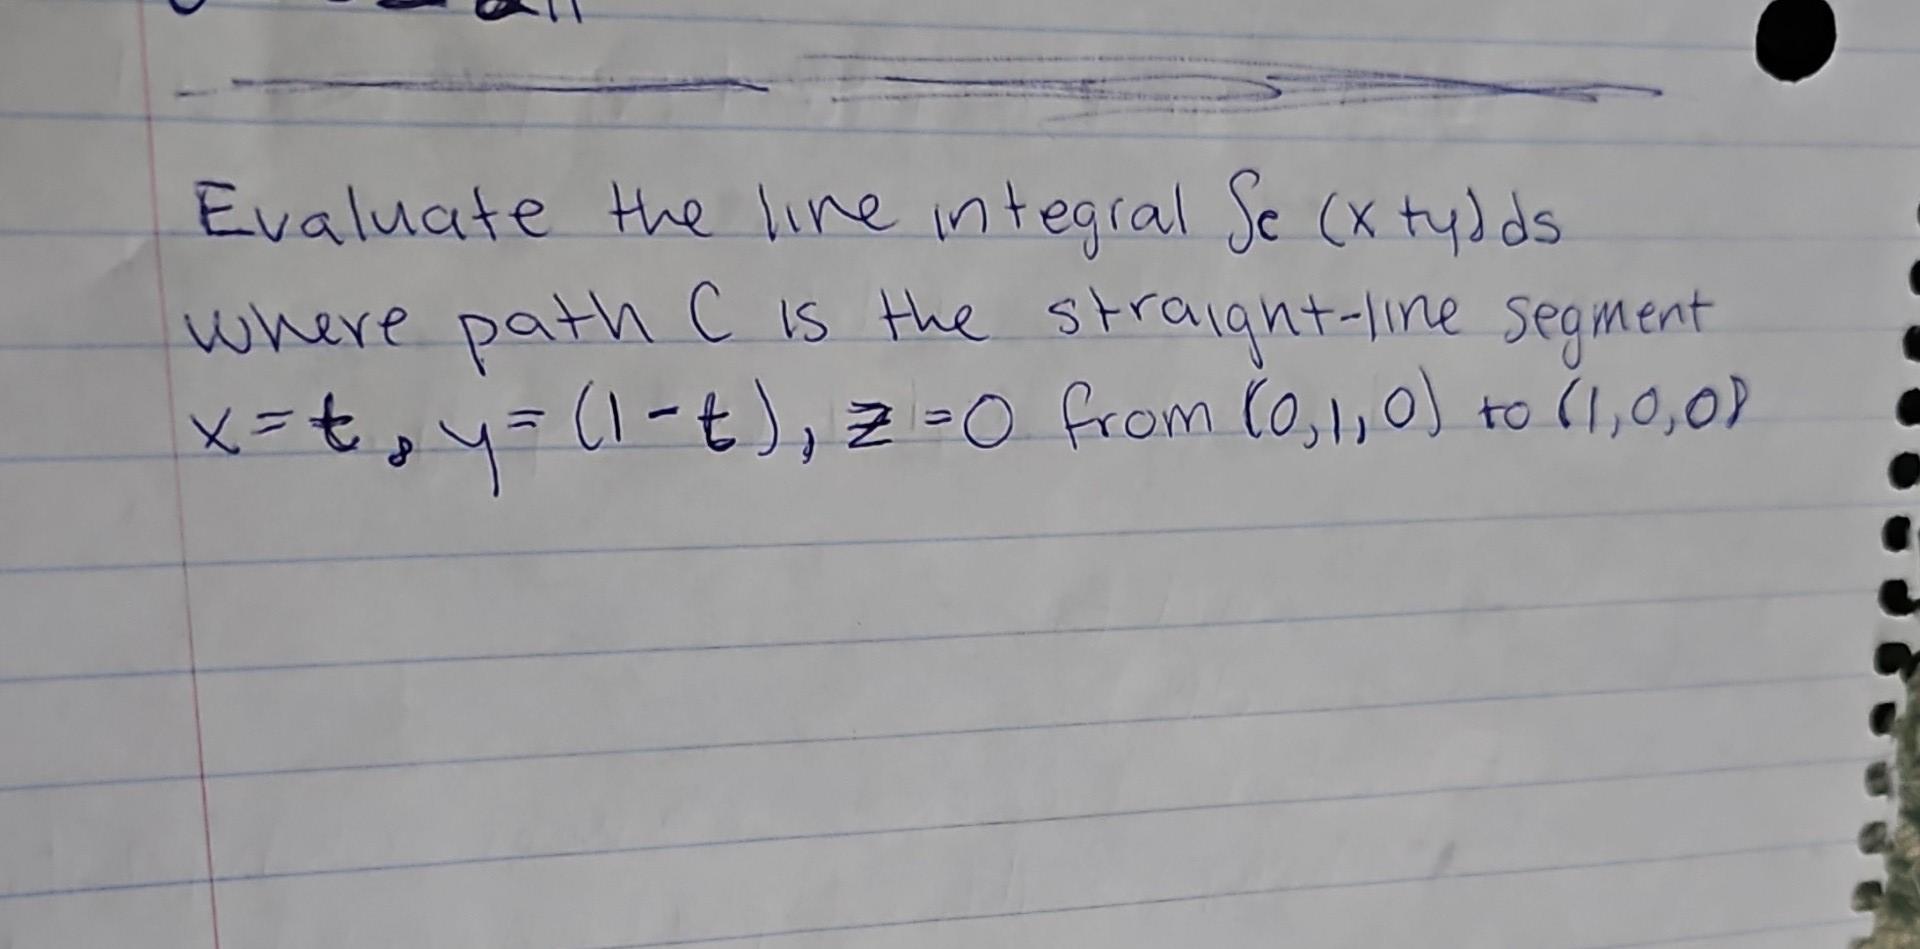 Evaluate the line integral ∫c (x+y)ds
where path C is the straight-line segment
x=t, y=(1-t), z=0 from (0,1,0) to (1,0,0)